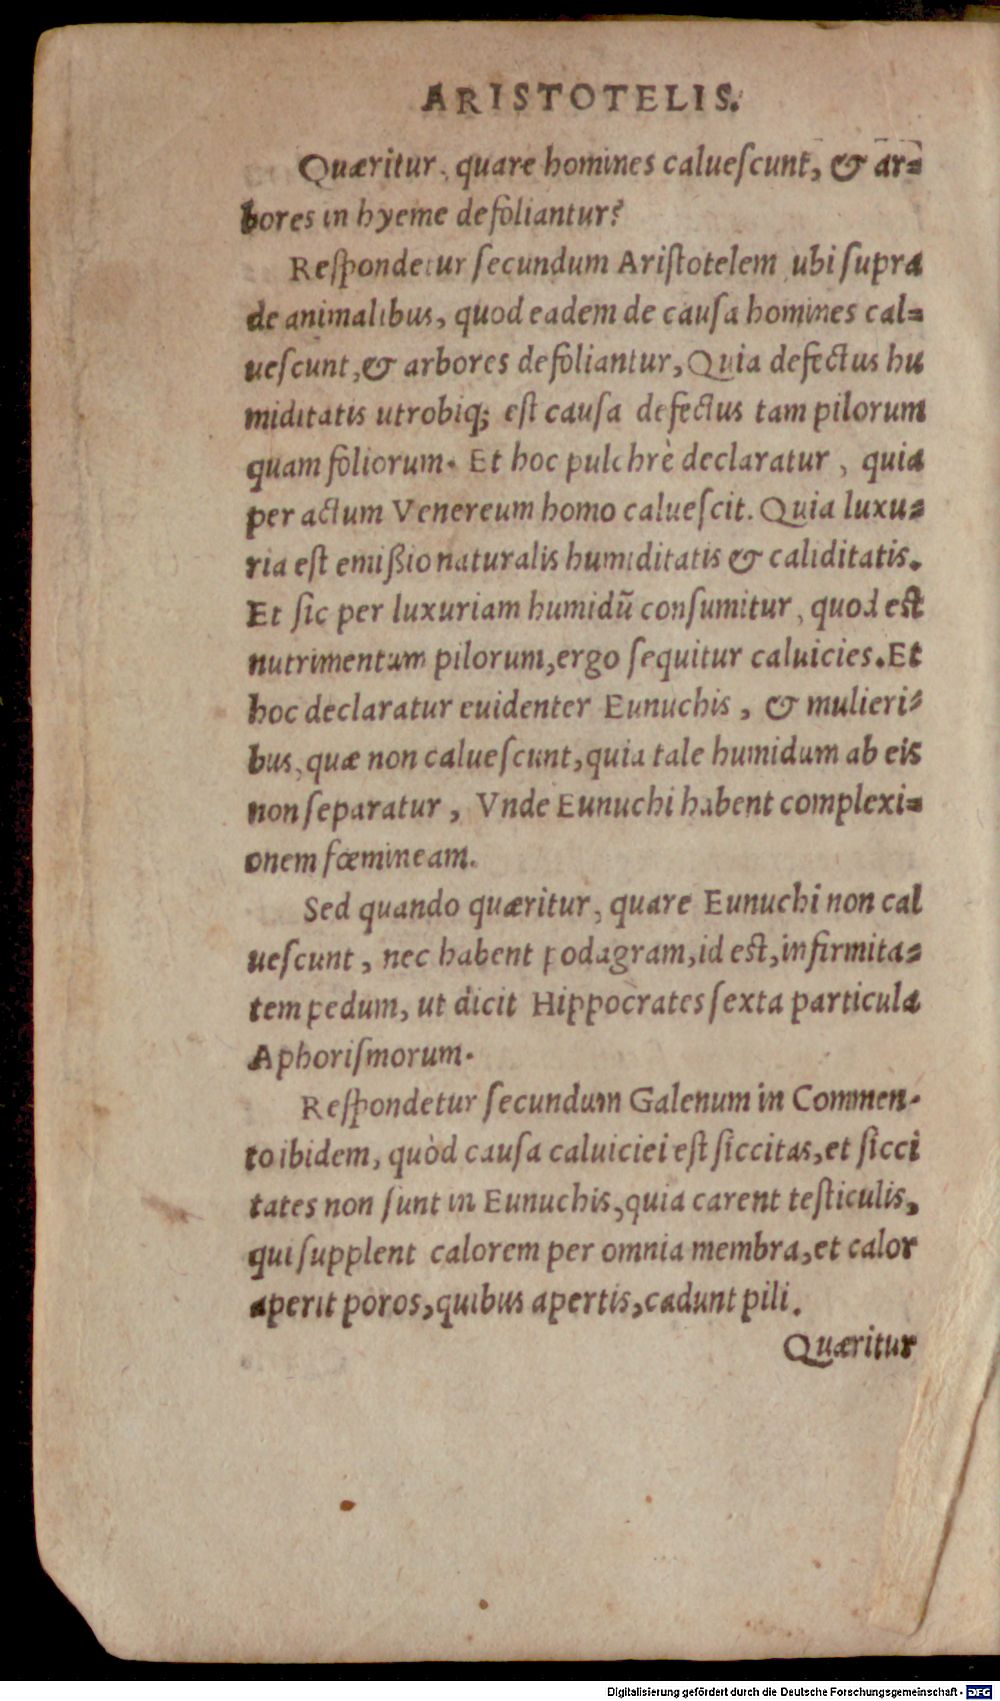 ARISTOTELIS.
Quæritur, quare homines caluescunt, & ar-
bores in hyeme defoliantur?
Respondetur secundum Aristotelem ubi supra
de animalibus, quod eadem de causa homines cal-
uescunt, & arbores defoliantur, Quia defectus hu
miditatis utrobiq; est causa defectus tam pilorum
quam foliorum. Et hoc pulchrè declaratur, quia
per actum Venereum homo caluescit. Quia luxu-
ria est emißio naturalis humiditatis & caliditatis.
Et sic per luxuriam humidū consumitur, quod est
nutrimentum pilorum, ergo sequitur caluicies. Et
hoc declaratur euidenter Eunuchis, & mulieri-
bus, quæ non caluescunt, quia tale humidum ab eis
non separatur, Vnde Eunuchi habent complexi-
onem fœmineam.
Sed quando quæritur, quare Eunuchi non cal
uescunt, nec habent podagram, id est, infirmita-
tem pedum, ut dicit Hippocrates sexta particula
Aphorismorum.
Respondetur secundum Galenum in Commen-
to ibidem, quòd causa caluiciei est siccitas, et sicci
tates non sunt in Eunuchis, quia carent testiculis,
qui supplent calorem per omnia membra, et calor
aperit poros, quibus apertis, cadunt pili.
Quæritur
Digitalisierung gefördert durch die Deutsche Forschungsgemeinschaft - DFG